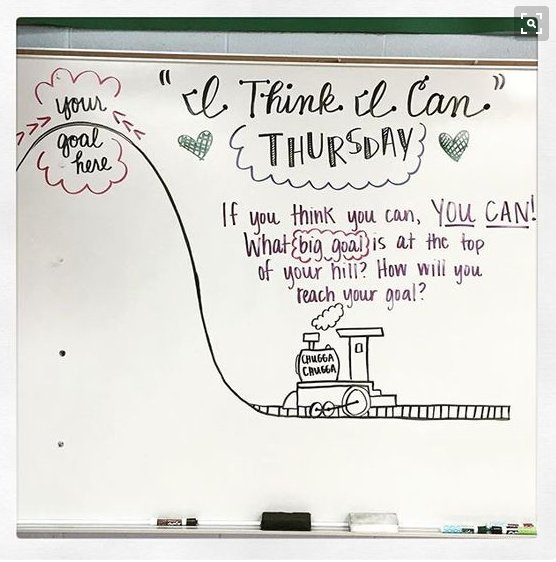 "I Think I Can"
THURSDAY
your
goal
here
If you think you can, YOU CAN!
What big goal is at the top
of your hill? How will you
reach your goal?
CHUGGA
CHUGGA